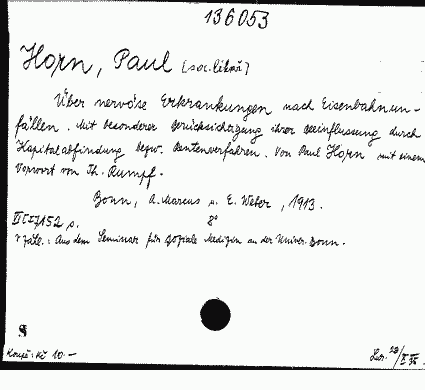 136053
Horn, Paul [soc. lékař]
Über nervöse Erkrankungen nach Eisenbahnun-
fällen. Mit besonderer Berücksichtigung ihrer Beeinflussung durch
Kapitalabfindung bezw. Rentenverfahren. Von Paul Horn mit einem
Vorwort von Th. Rumpf.
Bonn, A. Marcus u. E. Weber, 1913.
152 s. 8°
V záhl.: Aus dem Seminar für soziale Medizin an der Univer. Bonn.
S
Koupě: Kč 10.-